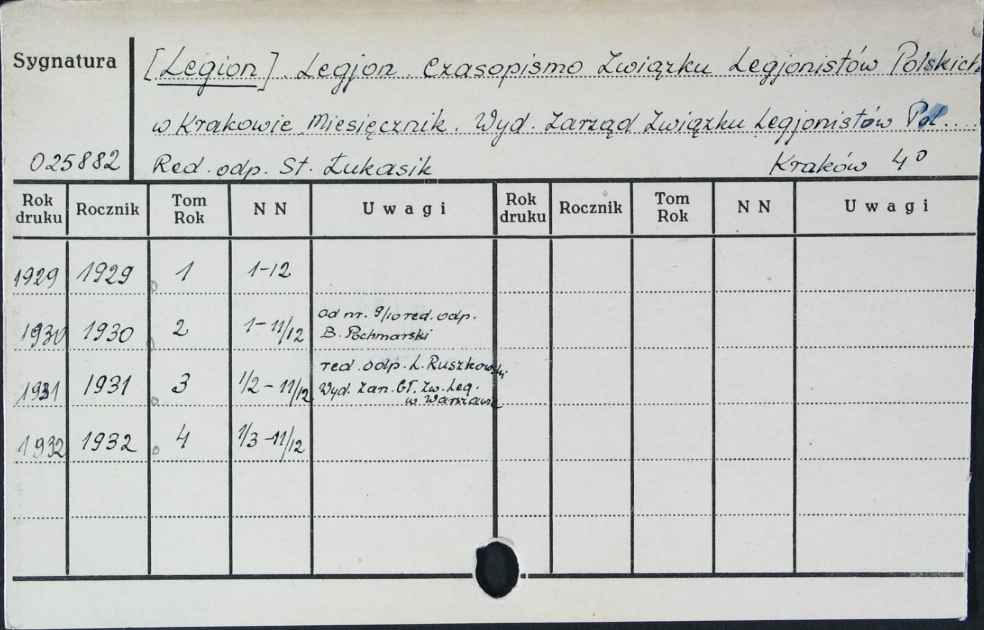 Sygnatura
[Legion] Legjon Czasopismo Związku Legjonistów Polskich
w Krakowie Miesięcznik. Wyd. Zarząd Związku Legjonistów Pol.
025882 Red. odp. St. Łukasik Kraków 4°
Rok druku Rocznik Tom Rok NN Uwagi Rok druku Rocznik Tom Rok NN Uwagi
1929 1929 1 1-12
1930 1930 2 1-11/12 od nr. 9/10 red. odp.
B. Pochmarski
1931 1931 3 1/2-11/12 red. odp. L. Ruszkowski
Wyd. Zarz. Gł. Zw. Leg.
w Warszawie
1932 1932 4 1/3-11/12